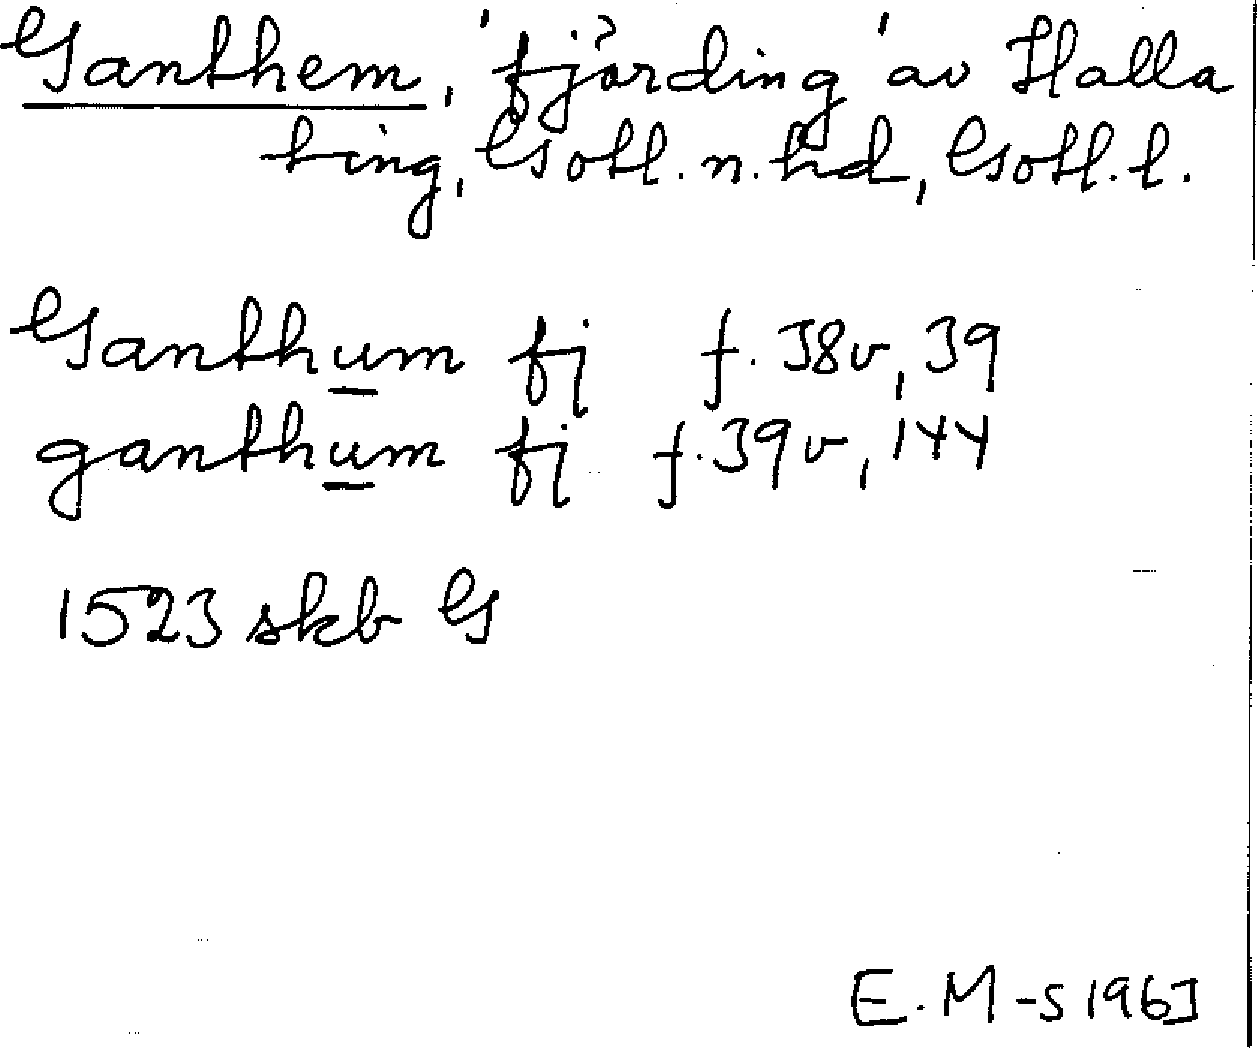 Ganthem, 'fjärding' av Halla
ting, Gotl. n. hd, Gotl. l.
Ganthum fj f. 38v, 39
ganthum fj f. 39v, 144
1523 skb G
E. M-s 1963